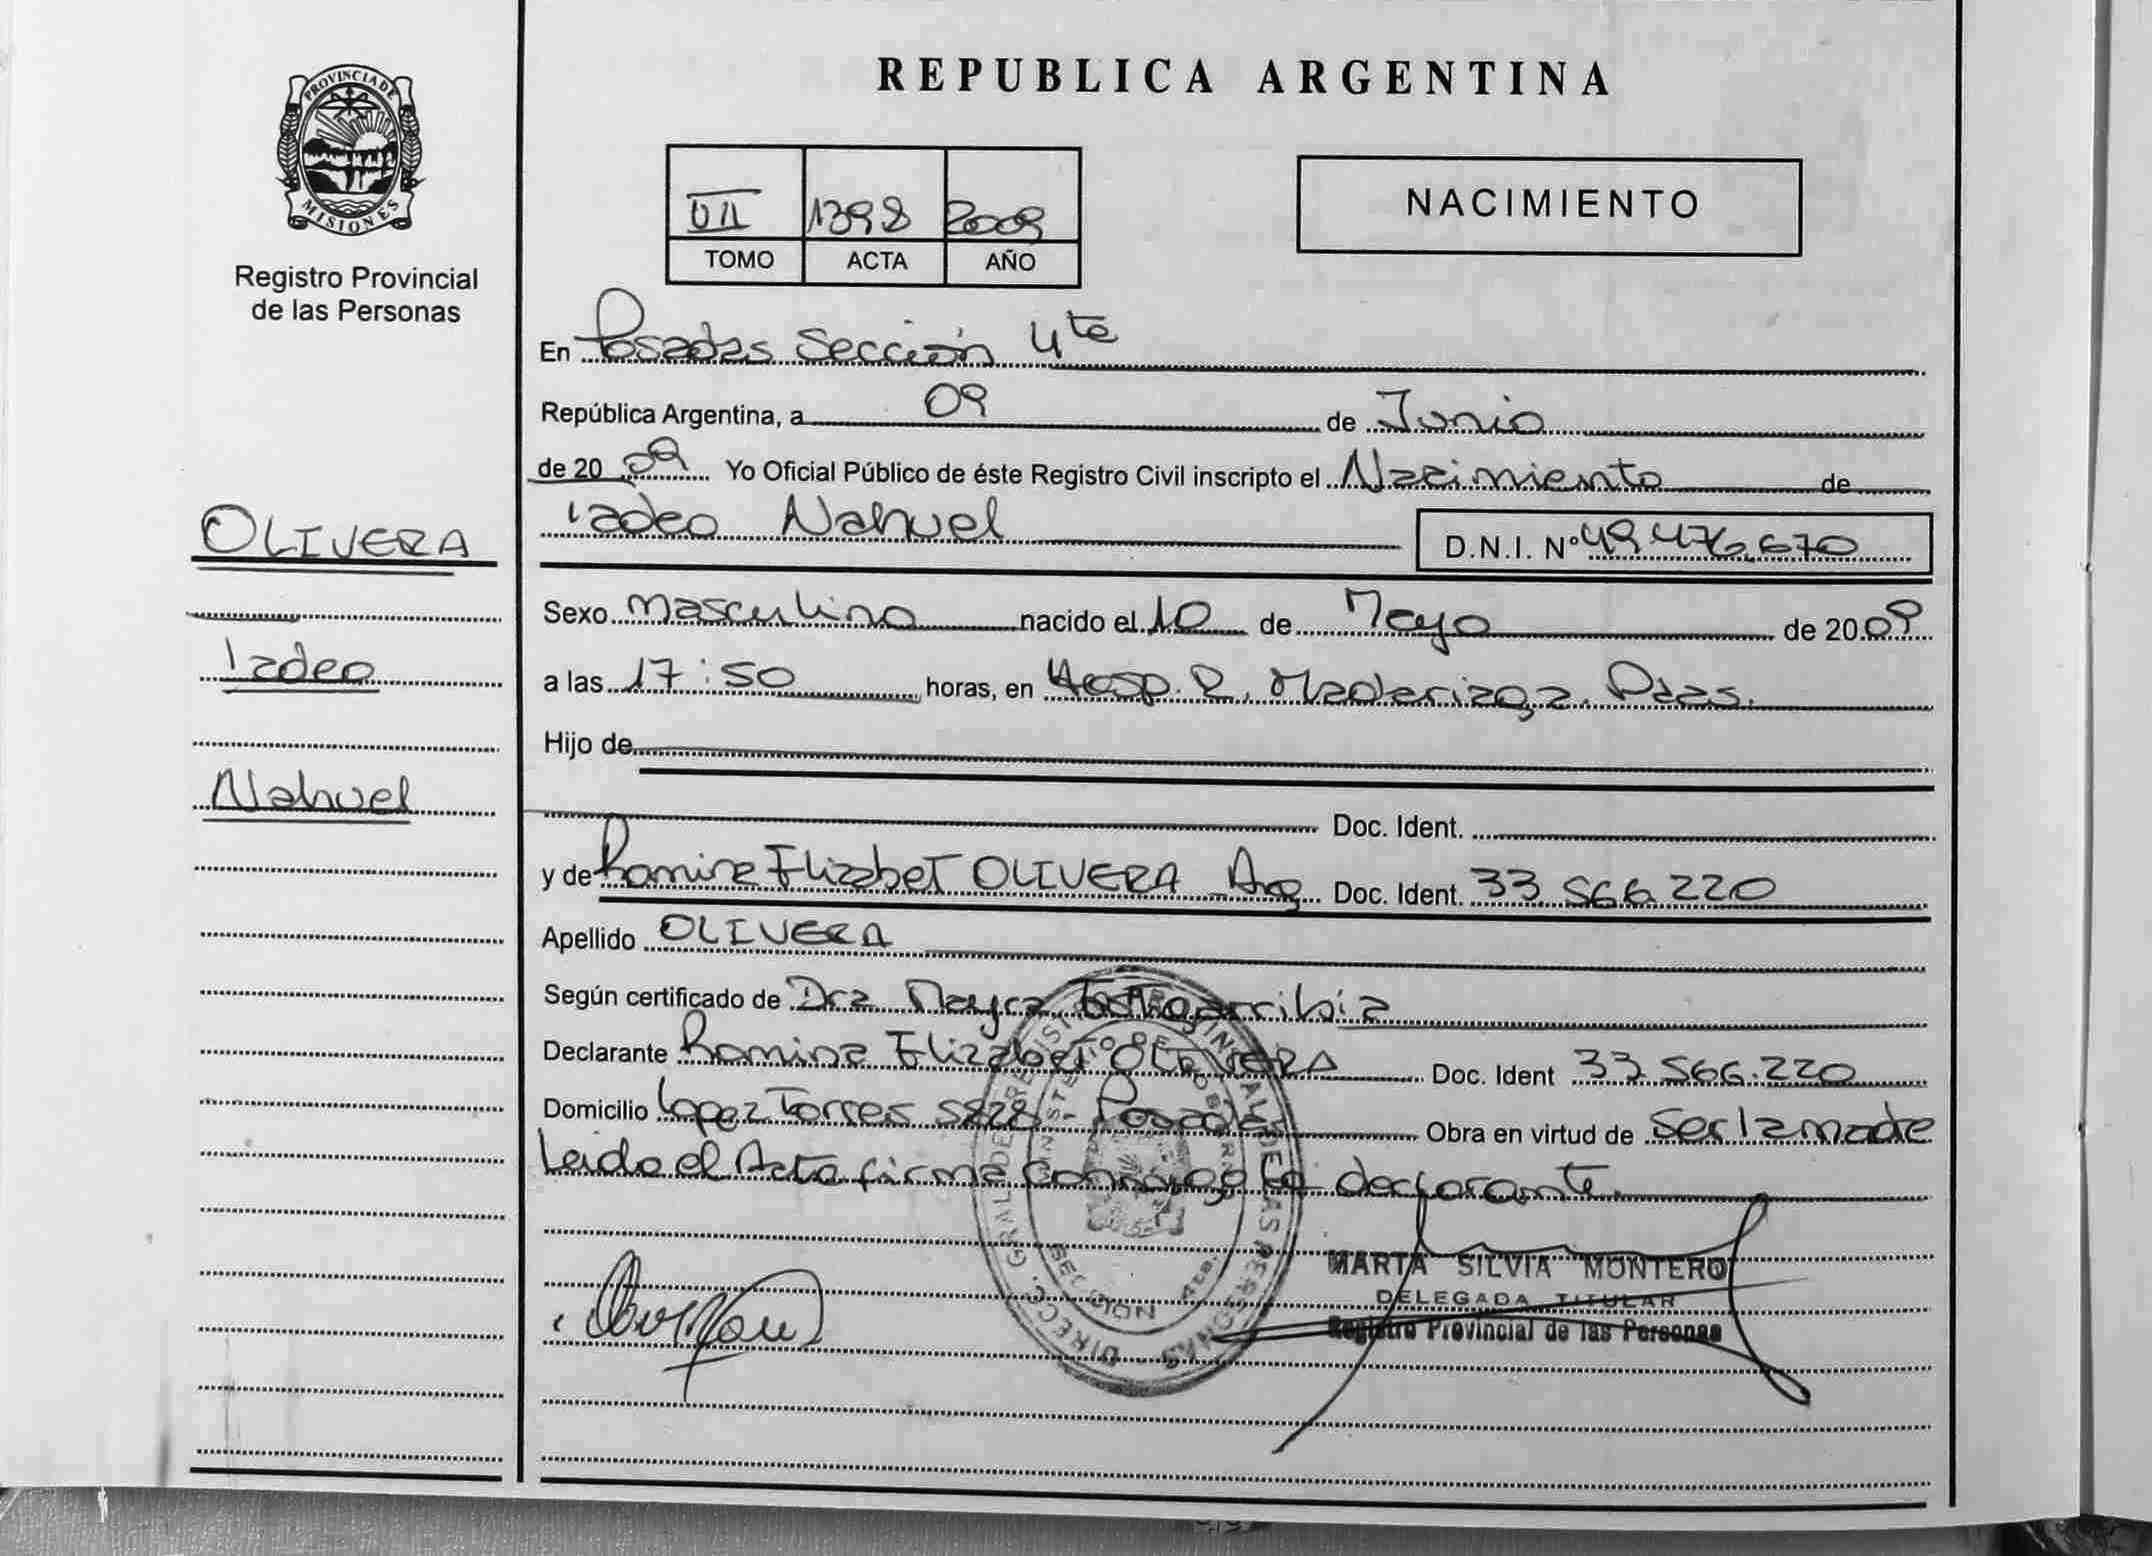 PROVINCIA DE
MISIONES
Registro Provincial
de las Personas
OLIVERA
Tadeo
Nahuel
REPUBLICA ARGENTINA
VII 1398 2009
TOMO ACTA AÑO
NACIMIENTO
En Posadas Sección 4ta
República Argentina, a 09 de Junio
de 20 09 Yo Oficial Público de éste Registro Civil inscripto el Nacimiento de
Tadeo Nahuel D.N.I. Nº 49.476.670
Sexo Masculino nacido el 10 de Mayo de 20 09
a las 17:50 horas, en Hosp. R. Madariaga. Pdas.
Hijo de
Doc. Ident.
y de Romina Elizabet OLIVERA Arg. Doc. Ident. 33.566.220
Apellido OLIVERA
Según certificado de Dra Mayra
Declarante Romina Elizabet OLIVERA Doc. Ident 33.566.220
Domicilio Lopez Torres 5828 Posadas Obra en virtud de ser la madre
Leido el Acta firma conmigo la declarante.
MARTA SILVIA MONTERO
DELEGADA TITULAR
Registro Provincial de las Personas